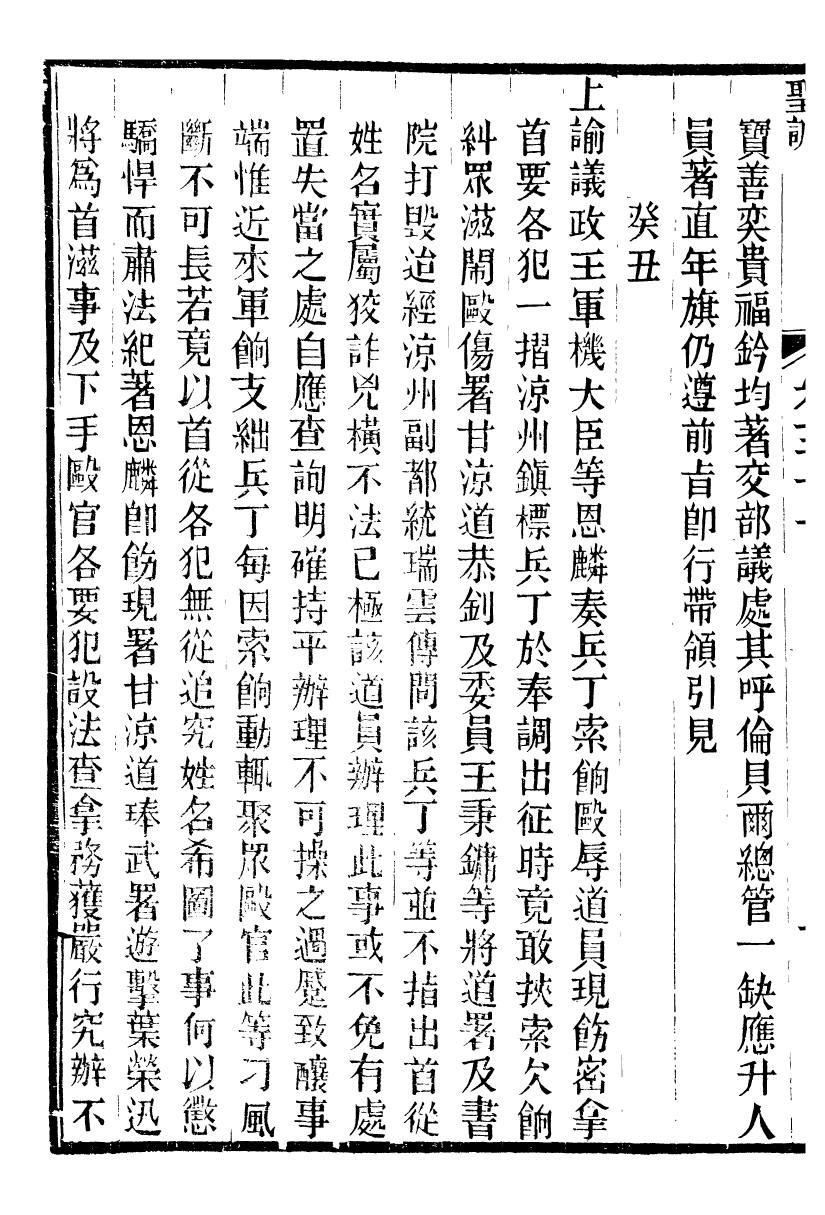 聖訓
寶善奕貴福鈐均著交部議處其呼倫貝爾總管一缺應升人
員著直年旗仍遵前旨卽行帶領引見
癸丑
上諭議政王軍機大臣等恩麟奏兵丁索餉毆辱道員現飭密拿
首要各犯一摺涼州鎮標兵丁於奉調出征時竟敢挾索欠餉
糾眾滋鬧毆傷署甘涼道恭釗及委員王秉鏞等將道署及書
院打毀迨經涼州副都統瑞雲傳問該兵丁等並不指出首從
姓名實屬狡詐兇橫不法已極該道員辦理此事或不免有處
置失當之處自應查詢明確持平辦理不可操之過蹙致釀事
端惟近來軍餉支絀兵丁每因索餉動輒聚眾毆官此等刁風
斷不可長若竟以首從各犯無從追究姓名希圖了事何以懲
驕悍而肅法紀著恩麟卽飭現署甘涼道琫武署遊擊葉榮迅
將爲首滋事及下手毆官各要犯設法查拿務獲嚴行究辦不